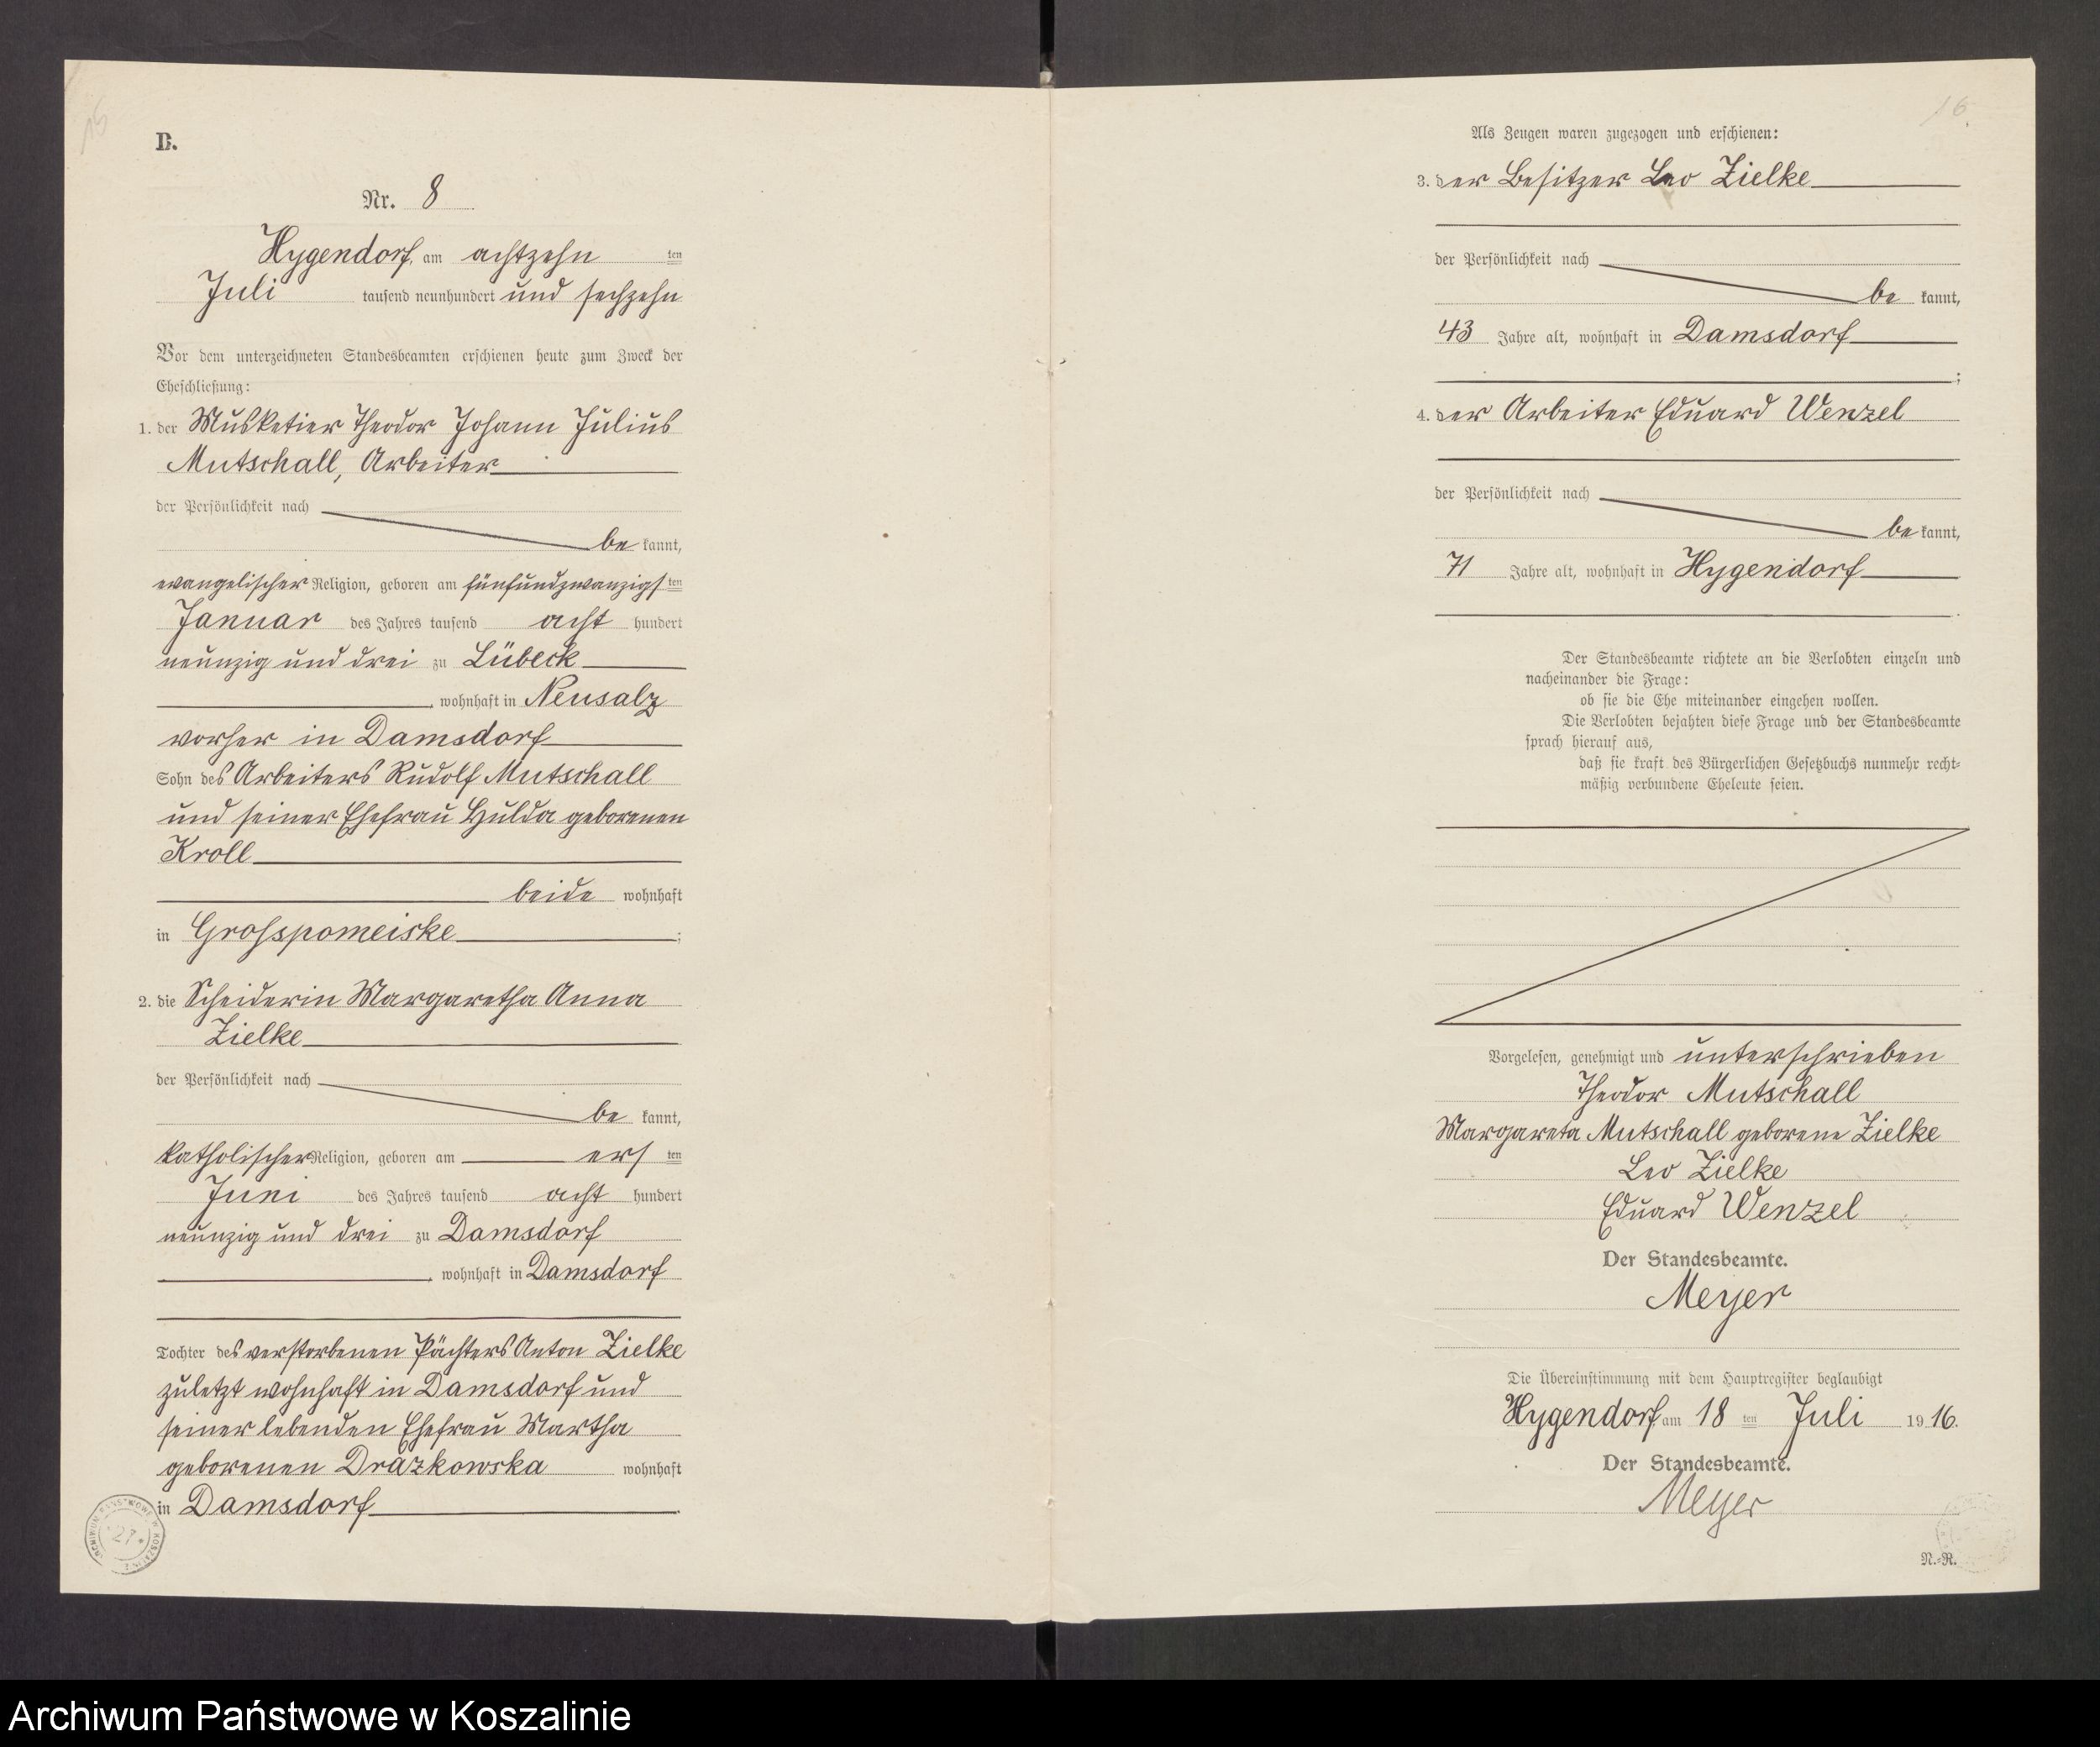 15
B.
Nr. 8
Hygendorf, am achtzehn ten
Juli tausend neunhundert und sechzehn
Vor dem unterzeichneten Standesbeamten erschienen heute zum Zweck der
Eheschließung:
1. der Musketier Theodor Johann Julius
Mutschall, Arbeiter
der Persönlichkeit nach
be kannt,
evangelischer Religion, geboren am fünfundzwanzigs ten
Januar des Jahres tausend acht hundert
neunzig und drei zu Lübeck
, wohnhaft in Neusalz
vorher in Damsdorf
Sohn des Arbeiters Rudolf Mutschall
und seiner Ehefrau Hulda geborenen
Kroll
beide wohnhaft
in Grosspomeiske ;
2. die Scheiderin Margaretha Anna
Zielke
der Persönlichkeit nach
be kannt,
katholischer Religion, geboren am ers ten
Juni des Jahres tausend acht hundert
neunzig und drei zu Damsdorf
, wohnhaft in Damsdorf
Tochter des verstorbenen Pächters Anton Zielke
zuletzt wohnhaft in Damsdorf und
seiner lebenden Ehefrau Martha
geborenen Drazkowska wohnhaft
in Damsdorf .
ARCHIWUM PAŃSTWOWE W KOSZALINIE
* 27 *
16.
Als Zeugen waren zugezogen und erschienen:
3. der Besitzer Leo Zielke
der Persönlichkeit nach
be kannt,
43 Jahre alt, wohnhaft in Damsdorf
;
4. der Arbeiter Eduard Wenzel
der Persönlichkeit nach
be kannt,
71 Jahre alt, wohnhaft in Hygendorf
.
Der Standesbeamte richtete an die Verlobten einzeln und
nacheinander die Frage:
ob sie die Ehe miteinander eingehen wollen.
Die Verlobten bejahten diese Frage und der Standesbeamte
sprach hierauf aus,
daß sie kraft des Bürgerlichen Gesetzbuchs nunmehr recht-
mäßig verbundene Eheleute seien.
Vorgelesen, genehmigt und unterschrieben
Theodor Mutschall
Margareta Mutschall geborene Zielke
Leo Zielke
Eduard Wenzel
Der Standesbeamte.
Meyer
Die Übereinstimmung mit dem Hauptregister beglaubigt
Hygendorf, am 18 ten Juli 1916.
Der Standesbeamte.
Meyer
N.-R.
Archiwum Państwowe w Koszalinie